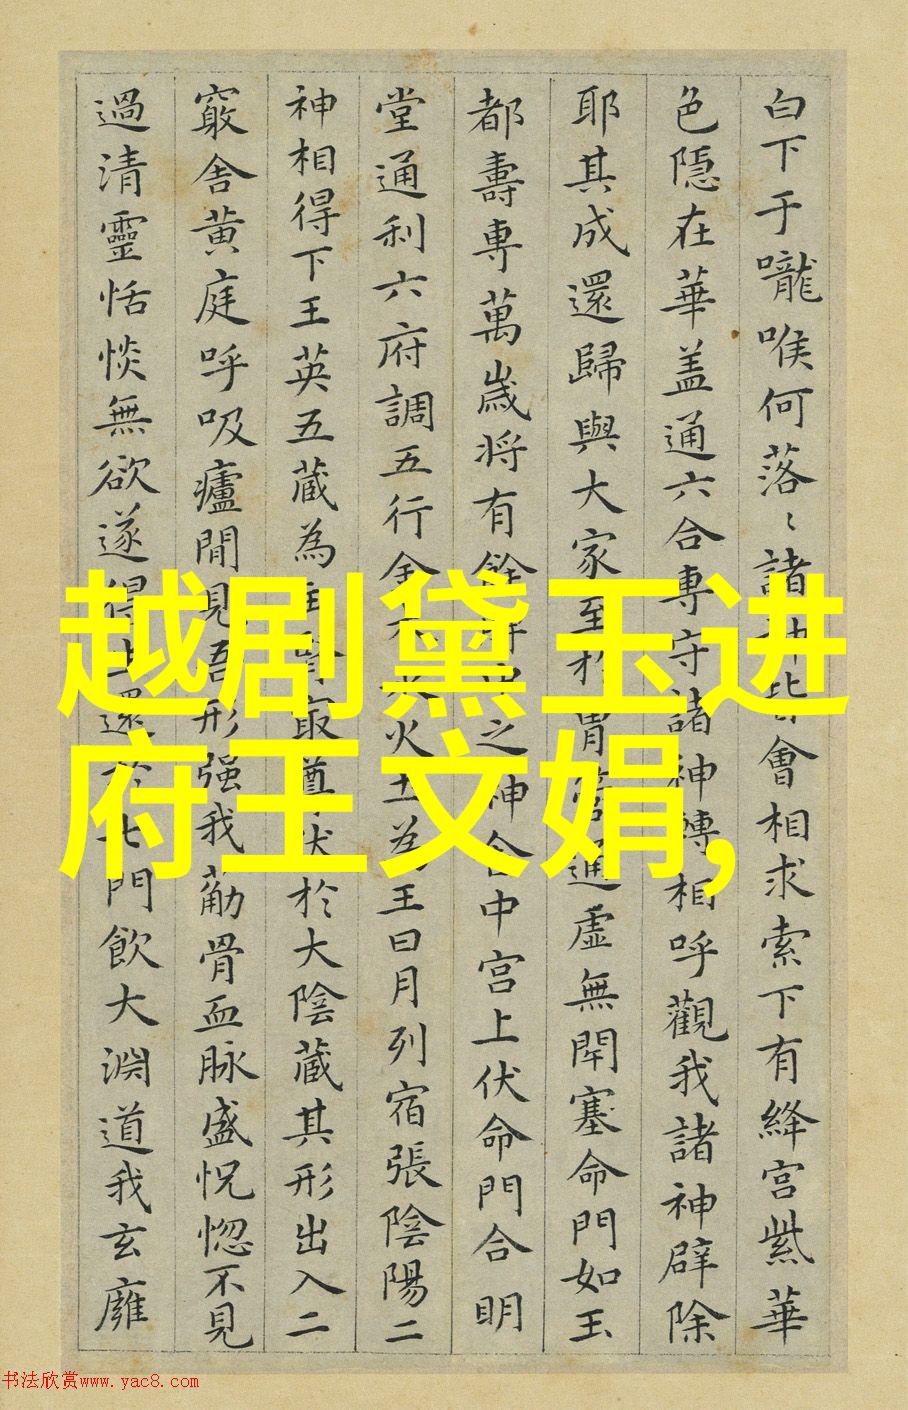 白下于嚨喉何落々諸神皆會相求索下有絳宫紫華
色隱在華盖通六合專守諸神轉相呼觀我諸神辟除
耶其成還歸與大家至於胃管通虛無閇塞命門如玉
都壽專萬歲将有餘脾中之神舍中宫上伏命門合明
堂通利六府調五行金木水火土為王日月列宿張陰陽二
神相得下王英五藏為主腎寂尊伏於大陰藏其形出入二
竅舍黄庭呼吸廬間見吾形强我筋骨血脉盛怳惚不見
過清靈恬惔無欲遂得上還於七門飲大淵道我玄廱
越剧黛玉进
府王文娟,
书法欣赏www.yac8.com